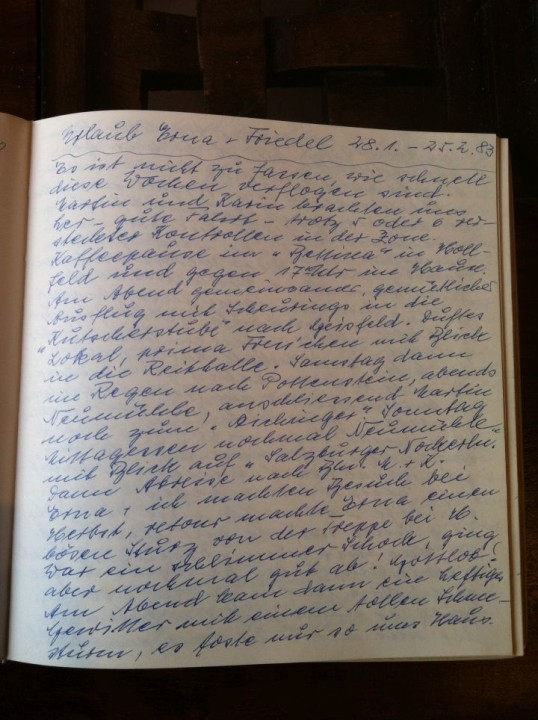 Urlaub Erna + Friedel 28.1. – 25.2.83
Es ist nicht zu fassen wie schnell
diese Wochen verflogen sind.
Martin und Karin brachten uns
her – gute Fahrt – trotz 5 oder 6 ver-
steckter Kontrollen in der Zone.
Kaffeepause im in Holl-
feld und gegen 17 Uhr im Haus.
Am Abend gemeinsamer, gemütlicher
Ausflug mit Scheurings in die
"Kutscherstube" nach Geisfeld. Duftes
Lokal, prima Fresschen mit Blick
in die Reithalle. Samstag dann
im Regen nach Pottenstein, abends
Neumühle, anschliessend Martin
noch zum "Aichinger" Sonntag
Mittagessen nochmal Neumühle
mit Blick auf "Salzburger Nockerln.
Dann Abreise nach Bln. M. + K.
Erna + ich machten Besuch bei
Herbst, retour machte Erna einen
bösen Sturz von der Treppe bei H.
War ein schlimmer Schock, ging
aber nochmal gut ab! Gottlob!
Am Abend kam dann ein heftiges
Gewitter mit einem tollen Schnee-
sturm, es toste nur so ums Haus